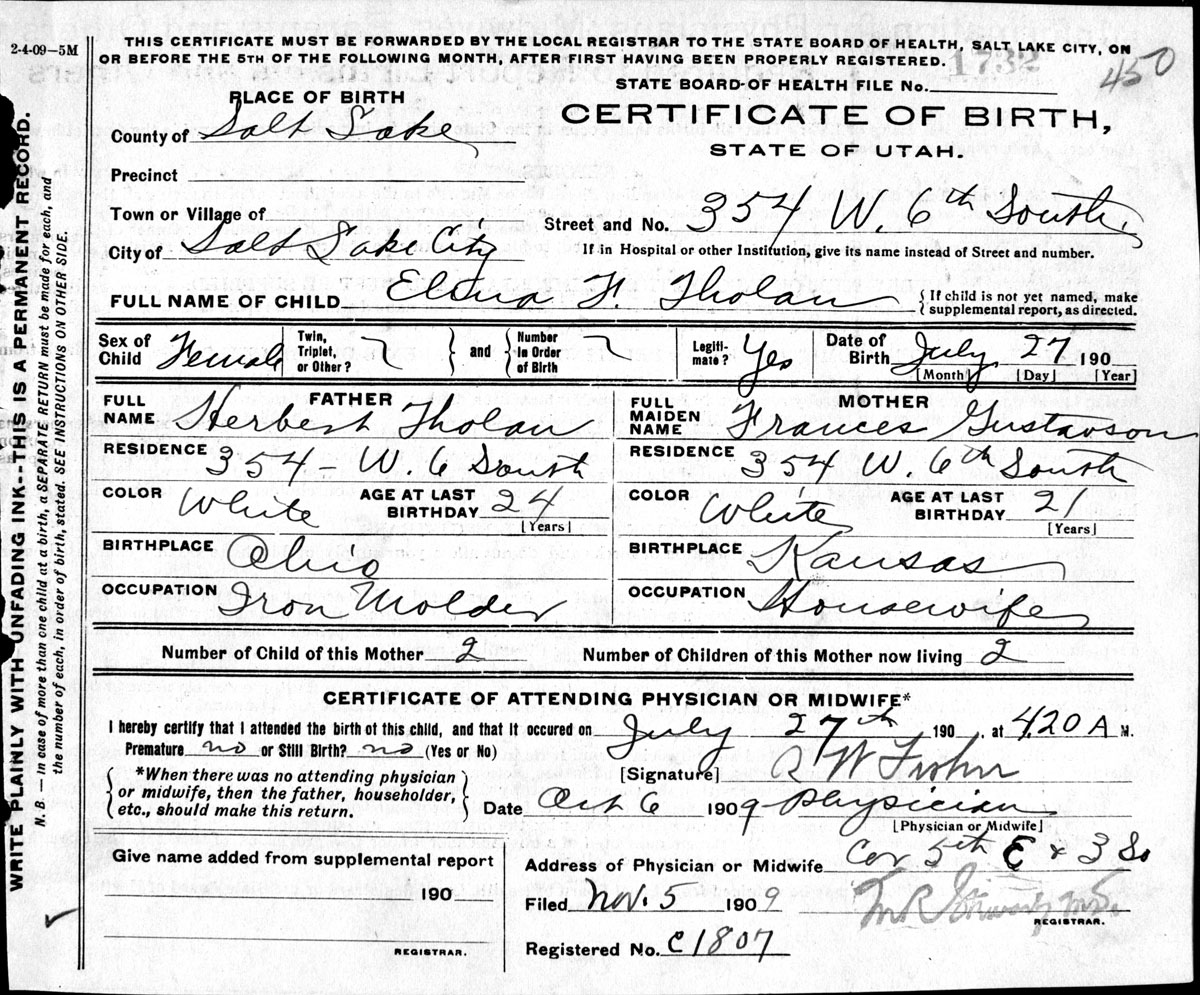 2-4-09-5M
THIS CERTIFICATE MUST BE FORWARDED BY THE LOCAL REGISTRAR TO THE STATE BOARD OF HEALTH, SALT LAKE CITY, ON
OR BEFORE THE 5TH OF THE FOLLOWING MONTH, AFTER FIRST HAVING BEEN PROPERLY REGISTERED.
1732
450
STATE BOARD OF HEALTH FILE No.
PLACE OF BIRTH
CERTIFICATE OF BIRTH,
STATE OF UTAH.
County of Salt Lake
Precinct
Town or Village of
Street and No. 354 W. 6th South.
City of Salt Lake City
If in Hospital or other Institution, give its name instead of Street and number.
FULL NAME OF CHILD Elina F. Tholan
If child is not yet named, make
supplemental report, as directed.
Sex of Child Female Twin, Triplet, or Other? and Number In Order of Birth Legiti-mate? Yes Date of Birth July 27 190
[Month] [Day] [Year]
FATHER
FULL NAME Herbert Tholan
RESIDENCE 354 - W. 6 South
COLOR White AGE AT LAST BIRTHDAY 24
[Years]
BIRTHPLACE Ohio
OCCUPATION Iron Molder
MOTHER
FULL MAIDEN NAME Frances Gustavson
RESIDENCE 354 W. 6th South
COLOR White AGE AT LAST BIRTHDAY 21
[Years]
BIRTHPLACE Kansas
OCCUPATION Housewife
Number of Child of this Mother 2 Number of Children of this Mother now living 2
CERTIFICATE OF ATTENDING PHYSICIAN OR MIDWIFE*
I hereby certify that I attended the birth of this child, and that it occured on July 27th 190 , at 4.20 A M.
Premature no or Still Birth? no (Yes or No)
*When there was no attending physician
or midwife, then the father, householder,
etc., should make this return.
[Signature] W
Date Oct 6 1909 Physician
[Physician or Midwife]
Give name added from supplemental report
190
REGISTRAR.
Address of Physician or Midwife Cor 5th E & 3 So
Filed Nov. 5 1909
REGISTRAR.
Registered No. C1807
WRITE PLAINLY WITH UNFADING INK--THIS IS A PERMANENT RECORD.
N. B. — in case of more than one child at a birth, a SEPARATE RETURN must be made for each, and
the number of each, in order of birth, stated. SEE INSTRUCTIONS ON OTHER SIDE.